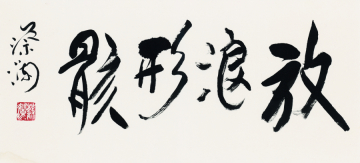 放浪形骸
梁潤